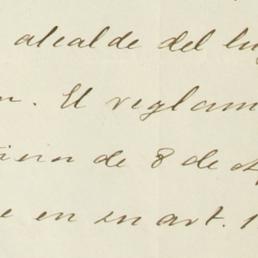 alcalde del lu
n. El reglam
de 8 de
e en su art. 1